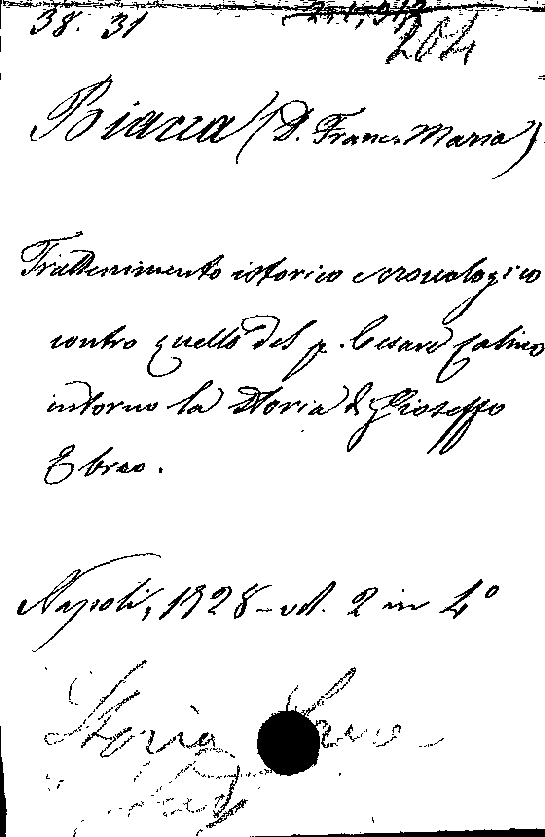 38. 31
204
Biacca (D. Franc. Maria)
Trattenimento istorico cronologico
contro quello del p. Cesare Calino
intorno la Storia di Gioseffo
Ebreo.
Napoli, 1728 - vol. 2 in 4º
Storia